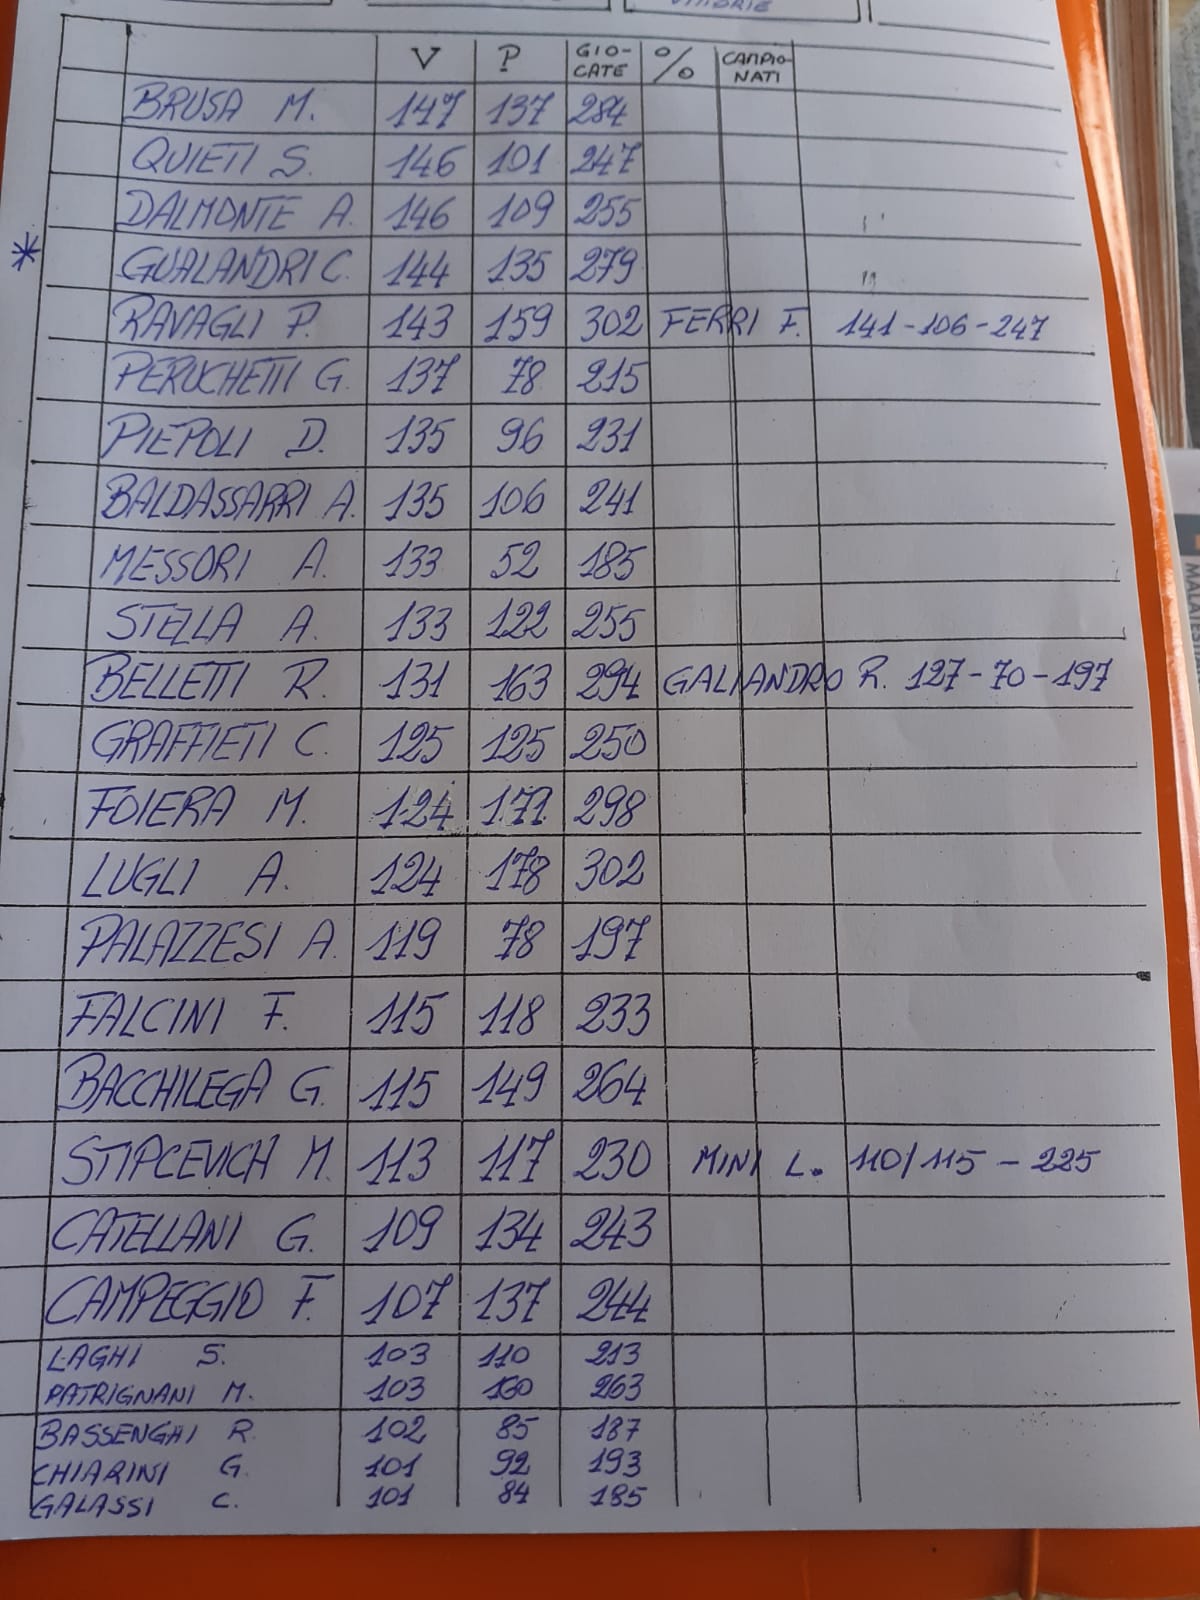 VITTORIE
V P GIO-CATE % CAMPIO-NATI
BRUSA M. 147 137 284
QUIETI S. 146 101 247
DALMONTE A. 146 109 255
* GUALANDRI C. 144 135 279
RAVAGLI P. 143 159 302 FERRI F. 141-106-247
PERUCHETTI G. 137 78 215
PIEPOLI D. 135 96 231
BALDASSARRI A. 135 106 241
MESSORI A. 133 52 185
STELLA A. 133 122 255
BELLETTI R. 131 163 294 GALIANDRO R. 127-70-197
GRAFFIETI C. 125 125 250
FOIERA M. 124 298
LUGLI A. 124 178 302
PALAZZESI A. 119 78 197
FALCINI F. 115 118 233
BACCHILEGA G. 115 149 264
STIPCEVICH M. 113 117 230 MINI L. 110/115-225
CATELLANI G. 109 134 243
CAMPEGGIO F. 107 137 244
LAGHI S. 103 110 213
PATRIGNANI M. 103 160 263
BASSENGHI R. 102 85 187
CHIARINI G. 101 92 193
GALASSI C. 101 84 185